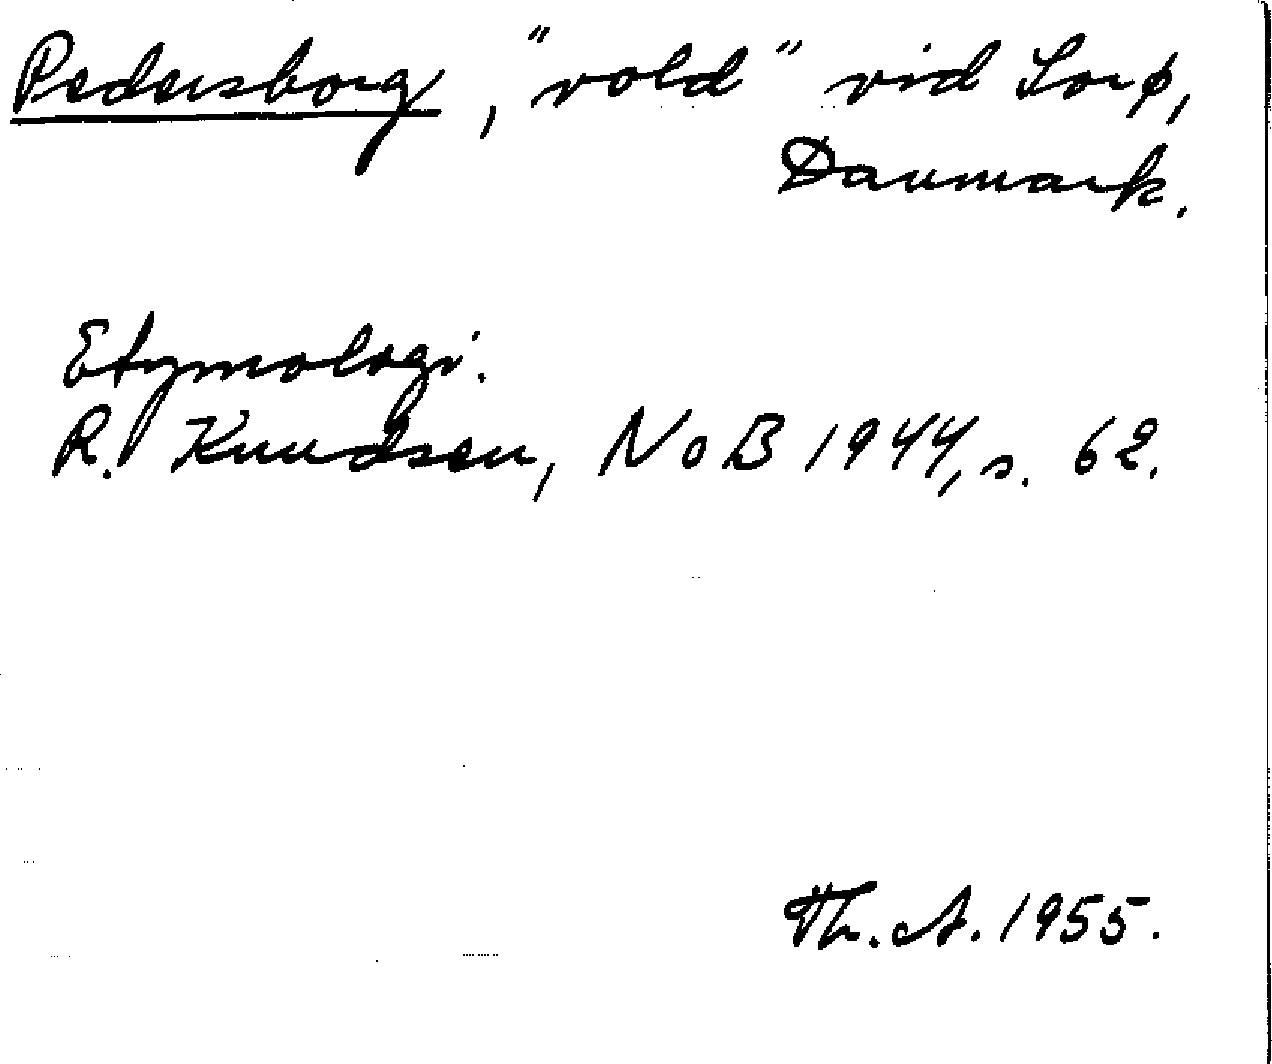 Pedersborg, "vold" vid Sorø,
Danmark.
Etymologi.
R. Knudsen, NoB 1944, s. 62.
Th. A. 1955.